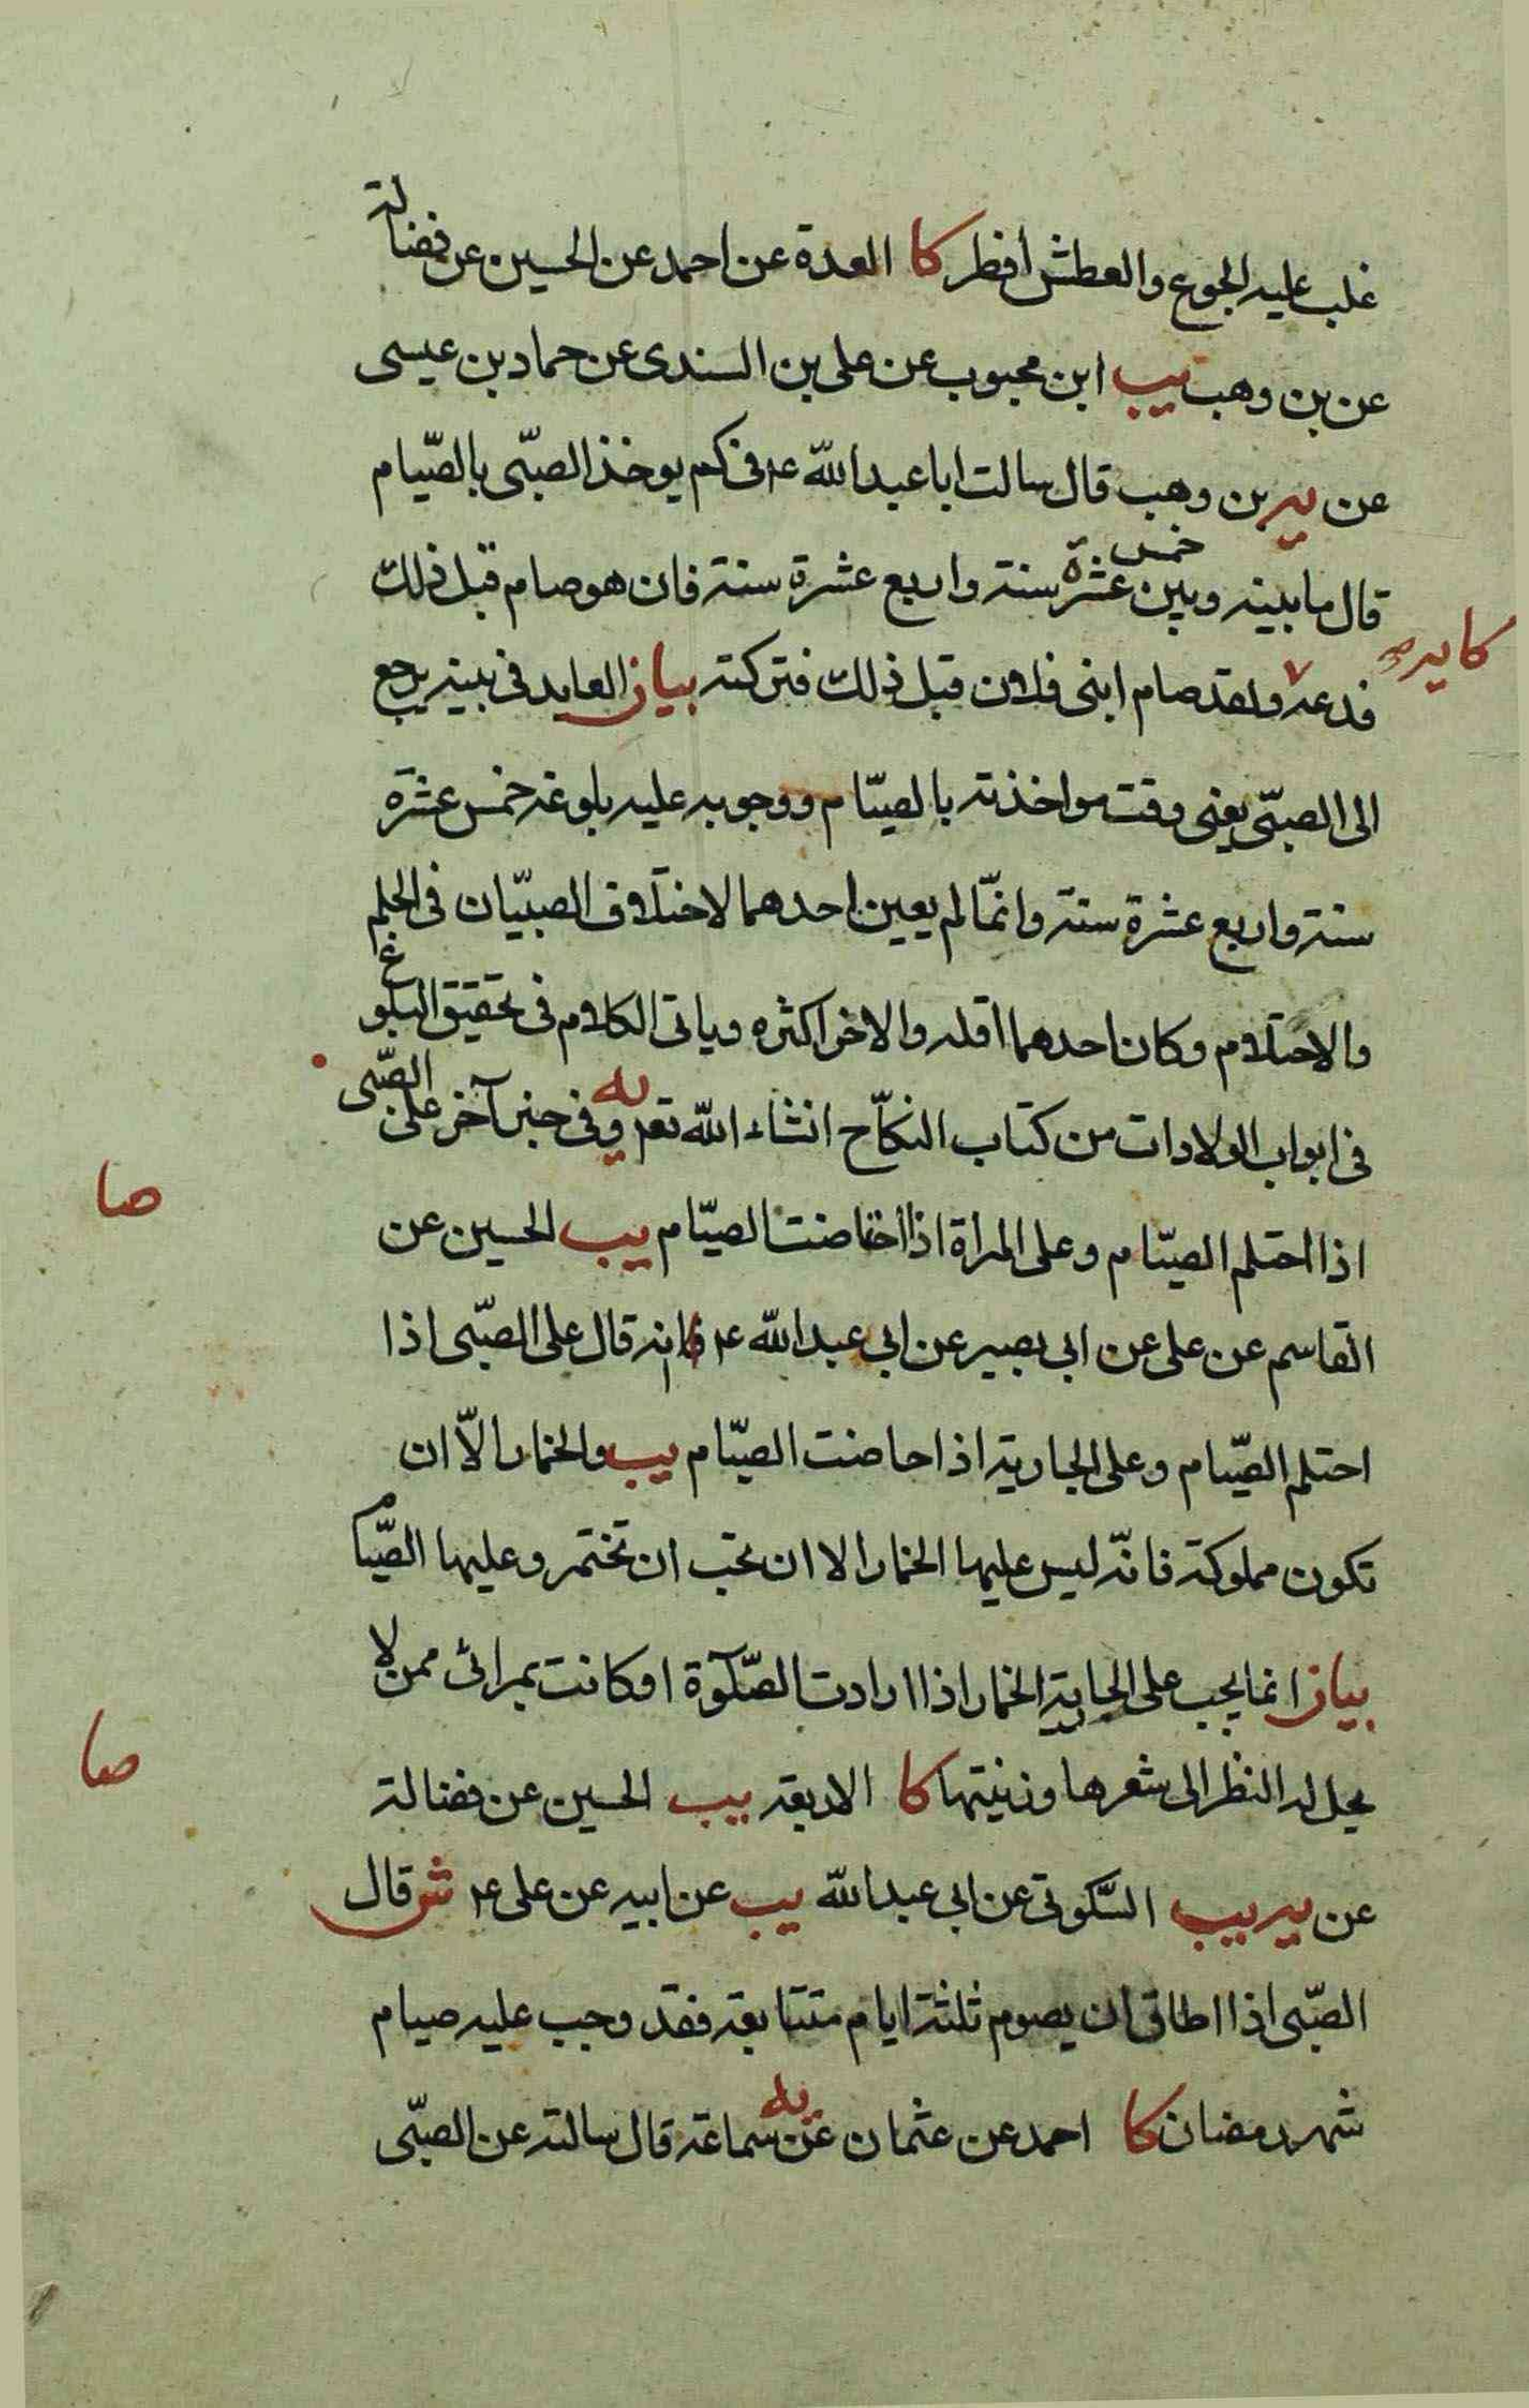 غلب عليه الجوع والعطش أفطر كا العدة عن احمد عن الحسين عن فضالة
عن بن وهب يب ابن محبوب عن على بن السندى عن حماد بن عيسى
عن ير بن وهب قال سالت ابا عبد الله ع فى كم يوخذ الصبّى بالصّيام
قال ما بينه وبين خمس عشرة سنة واربع عشرة سنة فان هو صام قبل ذلك
كا ير
فدعه ولقد صام ابنى فلان قبل ذلك فتركته بيان العايد فى بينه يرجع
الى الصبّى يعنى وقت مواخذته بالصيّام ووجوبه عليه بلوغه خمس عشرة
سنة واربع عشرة سنة وانمّا لم يعين احدهما لاختلاف الصبيّان فى الحلم
والاحتلام وكان احدهما اقله والاخر اكثره وياتى الكلام فى تحقيق البلوغ
فى ابواب الولادات من كتاب النكاّح انشاء الله تعم يه وفى خبر آخر على الصّبى
صا
اذا احتلم الصيّام وعلى المراة اذا حاضت الصيّام يب الحسين عن
القاسم عن على عن ابى بصير عن ابى عبد الله ع انه قال على الصّبى اذا
احتلم الصّيام وعلى الجارية اذا حاضت الصيّام يب والخمار الاّ ان
تكون مملوكة فانّه ليس عليها الخمار الا ان تحب ان تختمر وعليها الصّيام
بيان انما يجب على الجارية الخمار اذا ارادت الصّلوة او كانت بمرائ ممن لا
صا
يحل له النظر الى شعرها وزينتها كا الاربعة يب الحسين عن فضالة
عن ير يب السّكونى عن ابى عبد الله يب عن ابيه عن على ع ش قال
الصّبى اذا اطاق ان يصوم ثلثة ايام متتابعة فقد وجب عليه صيام
شهر رمضان كا احمد عن عثمان يه عن سماعة قال سالته عن الصبّى